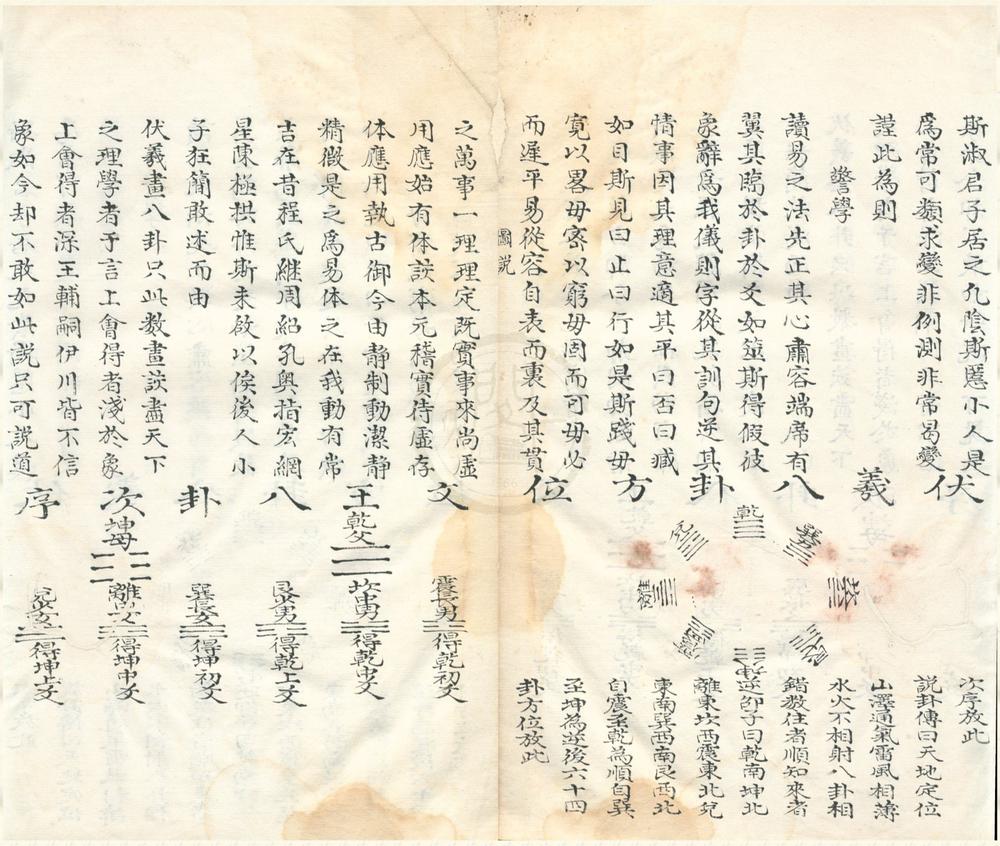 斯淑君子居之九陰斯慝小人是
爲常可類求變非例測非常曷變
謹此為則
警學
讀易之法先正其心肅容端席有
翼其臨於卦於爻如筮斯得假彼
象辭爲我儀則字從其訓句逆其
情事因其理意適其平曰否曰臧
如目斯見曰止曰行如是斯踐毋
寛以畧毋密以窮毋固而可毋必
而遲平易從容自表而裏及其貫
圖説
之萬事一理理定既實事來尚虛
用應始有体該本元稽實待虛存
体應用執古御今由靜制動潔靜
精微是之爲易体之在我動有常
吉在昔程氏継周紹孔奥指宏綱
星陳極拱惟斯未啟以俟後人小
子狂簡敢述而由
伏羲畫八卦只此数畫該盡天下
之理學者于言上會得者淺於象
上會得者深王輔嗣伊川皆不信
象如今却不敢如此説只可説道
伏羲八卦方位
乾
巽
坎
艮
坤
震
離
兌
次序放此
説卦傳曰天地定位
山澤通氣雷風相薄
水火不相射八卦相
錯数往者順知來者
逆卲子曰乾南坤北
離東坎西震東北兌
東南巽西南艮西北
自震至乾為順自巽
至坤為逆後六十四
卦方位放此
文王八卦次序
乾父
坤母
震長男
得乾初爻
坎中男
得乾中爻
艮少男
得乾上爻
巽長女
得坤初爻
離中女
得坤中爻
兌少女
得坤上爻